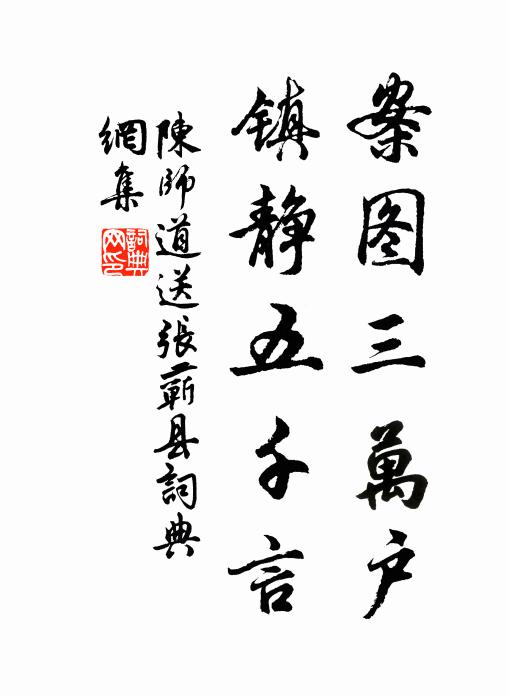 案图三萬户
镇静五千言
陳師道送張蕲县詞典
網集
詞典
网印